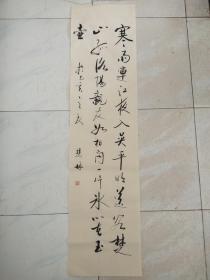 寒雨連江夜入吴平明送客楚
山孤洛陽親友如相问一片冰心在玉
壶